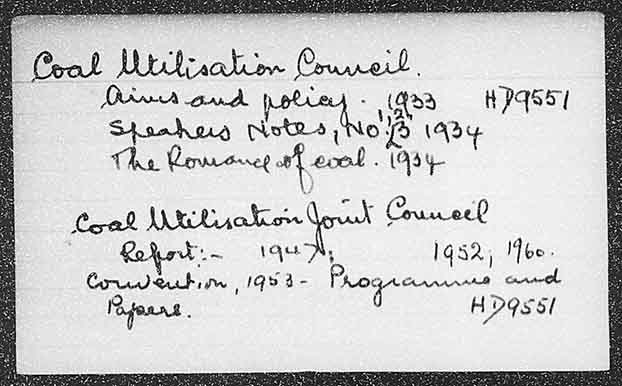 Coal Utilisation Council.
Aims and policy. 1933 HD9551
Speakers Notes, No. 1, 2, 3 1934
The Romance of coal. 1934
Coal Utilisation Joint Council
Report:- 1947, 1952, 1960.
Convention, 1953 - Programme and
Papers. HD9551